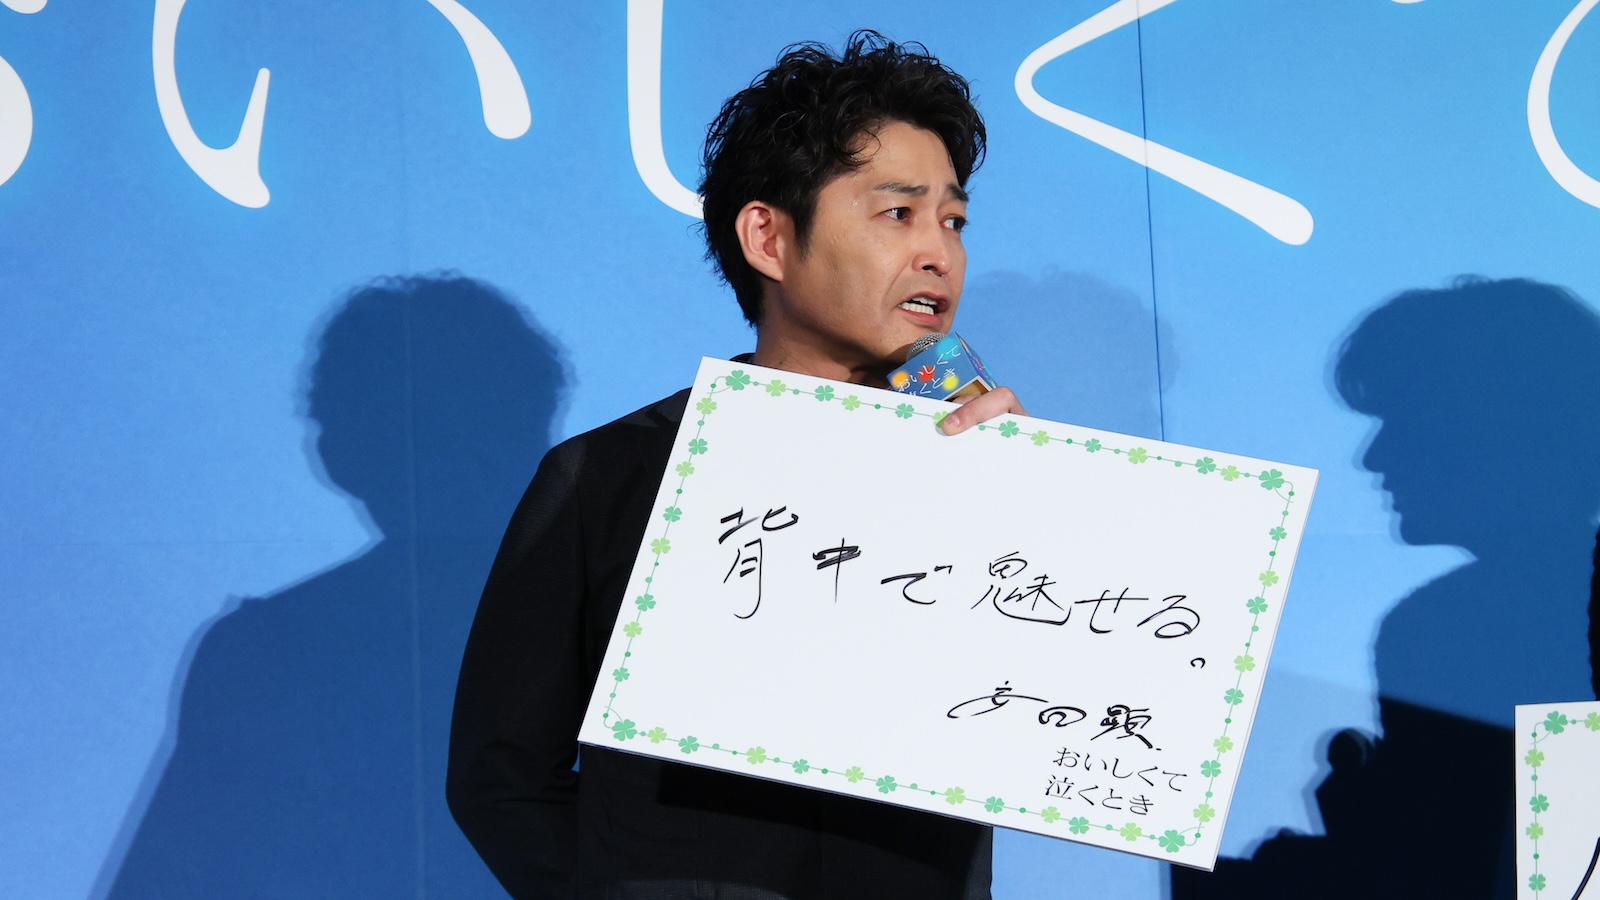 おいしくて
おいしくて
泣くとき
背中で魅せる。
安田顕
おいしくて
泣くとき